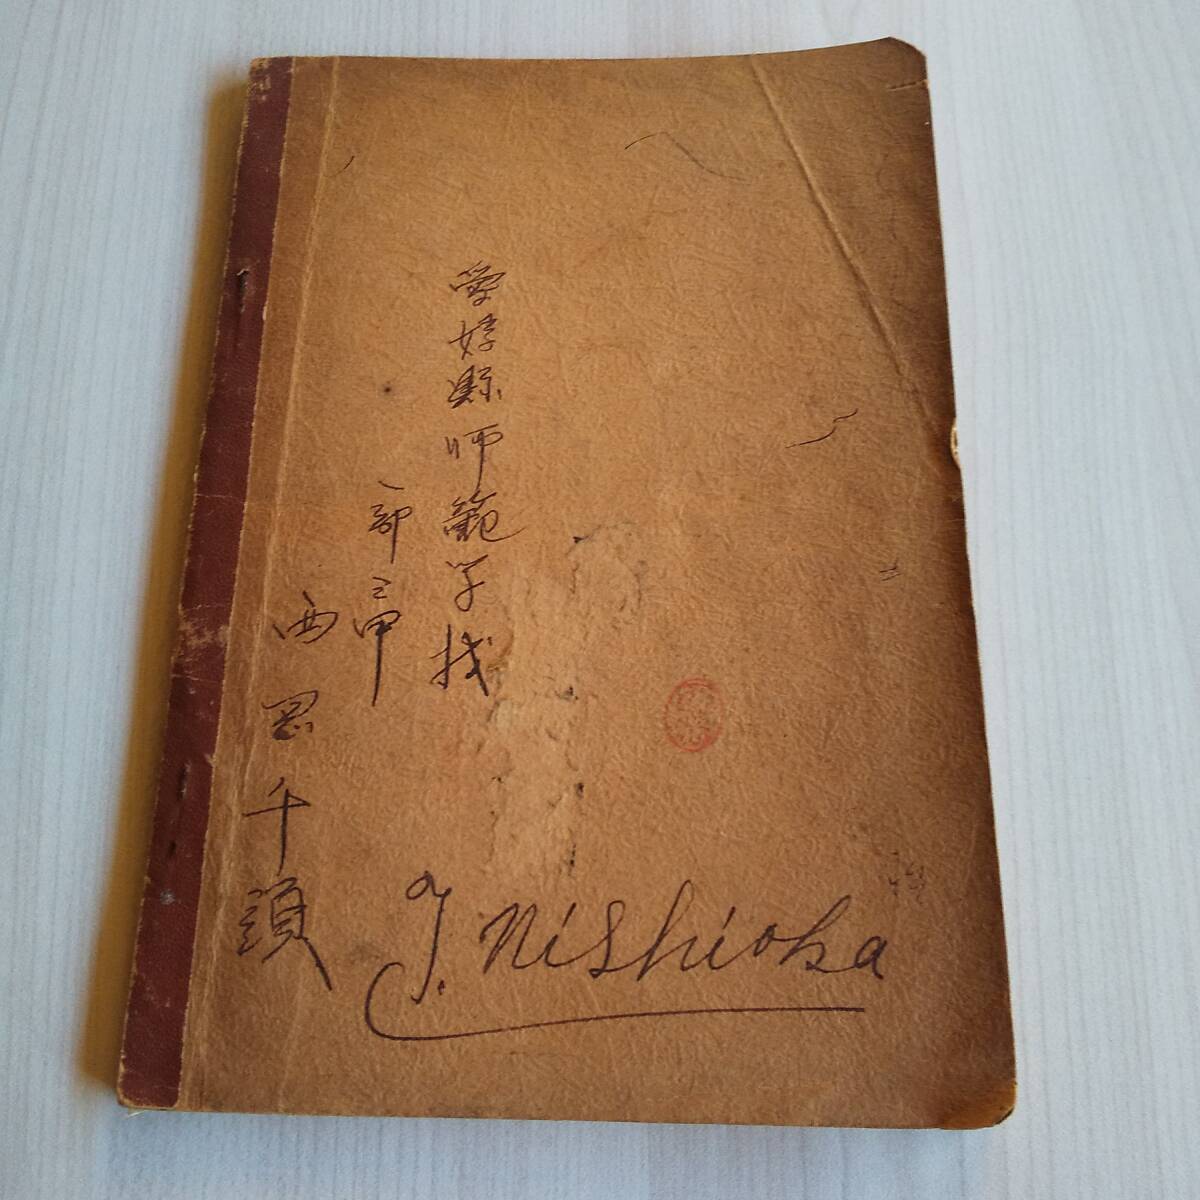 愛媛縣師範学校
一部三甲
西岡千頭
J. Nishioka